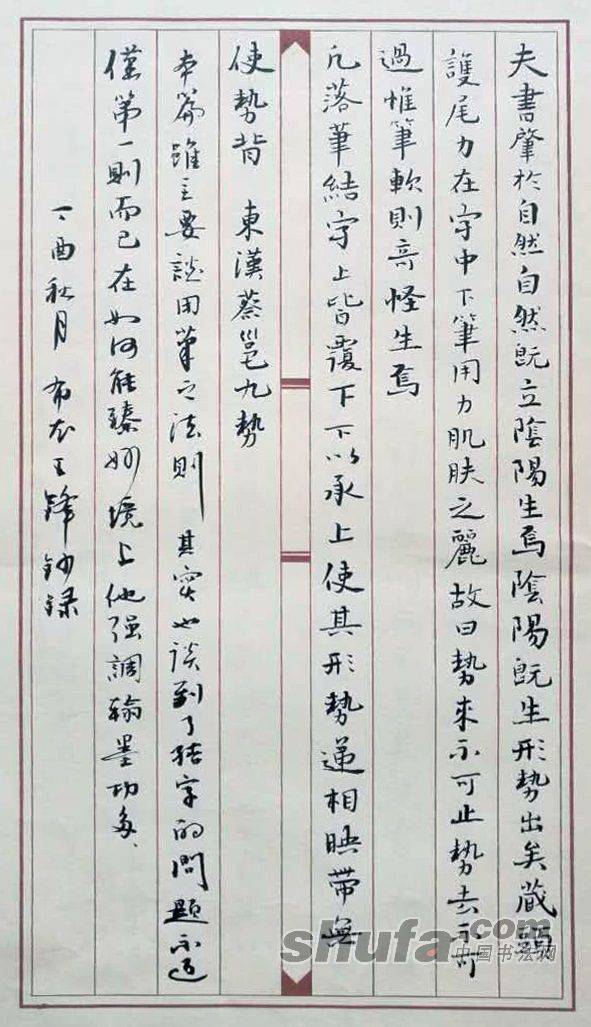 夫書肇於自然自然既立陰陽生焉陰陽既生形勢出矣蔵頭
護尾力在字中下筆用力肌膚之麗故曰勢来不可止势去不可
過惟筆軟則奇怪生焉
凡落筆結字上皆覆下下以承上使其形勢遞相映帶無
使勢背 東漢蔡邕九勢
本篇雖主要談用筆之法則 其实也談到了結字的問題不過
僅第一則而已在如何能臻妙境上他强調翰墨功多、
丁酉秋月 布衣王鋒鈔録
shufa.com
中国书法网